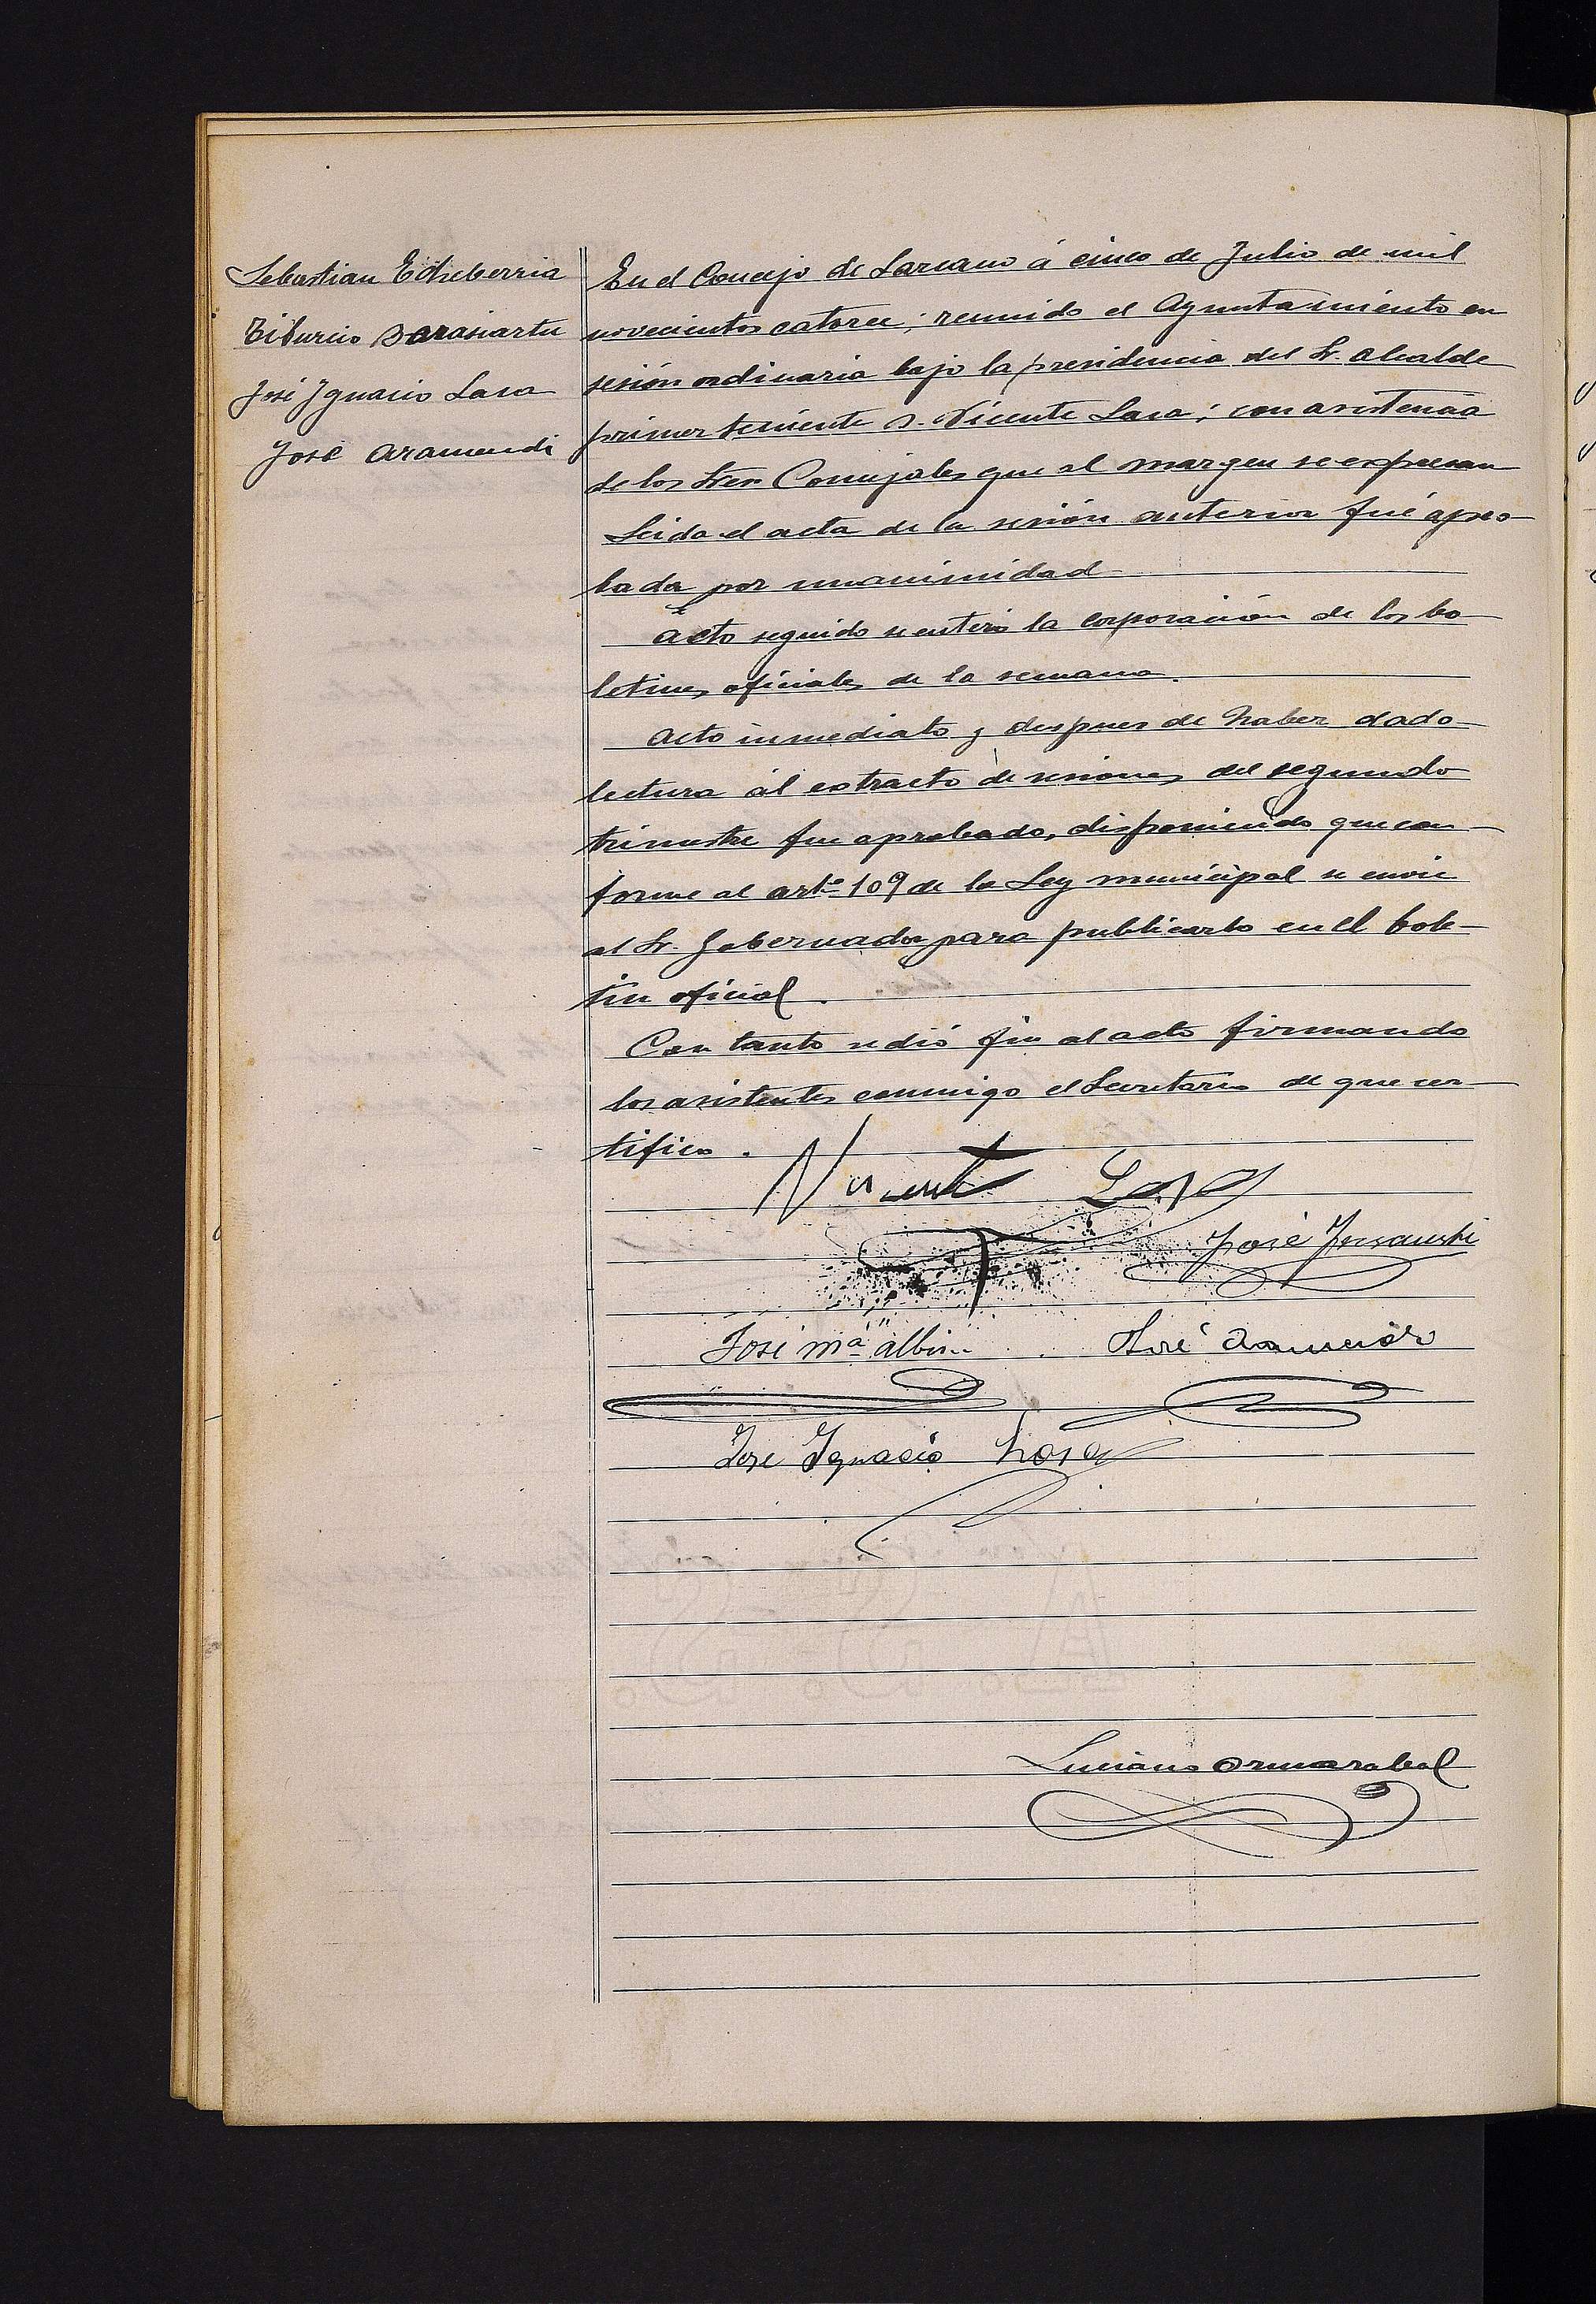 Sebastian Echeberria
Tiburcio Sarasiartu
José Ignacio Lasa
José Aramendi
En el Concejo de Lazcano á cinco de Julio de mil
novecientos catorce; reunido el Ayuntamiento en
sesión ordinaria bajo la presidencia del Sr. Alcalde
primer teniente D. Vicente Lasa; con asistencia
de los Sres Concejales que al margen se expresan
Leida el acta de la sesión anterior fué apro-
bada por unanimidad
Acto seguido se enteró la corporación de los bo-
letines oficiales de la semana.
Acto inmediato y despues de haber dado
lectura al extracto de sesiones del segundo
trimestre fue aprobado, disponiendo que con-
forme al artº 109 de la Ley municipal se envie
al Sr. Gobernador para publicarlo en el bole-
tin oficial.
Con tanto se dió fin al acto firmando
los asistentes conmigo el Secretario de que cer-
tifico.
Vicente Lasa
José
José Mª
José Aramendi
José Ignacio Lasa
Luciano Ormazabal